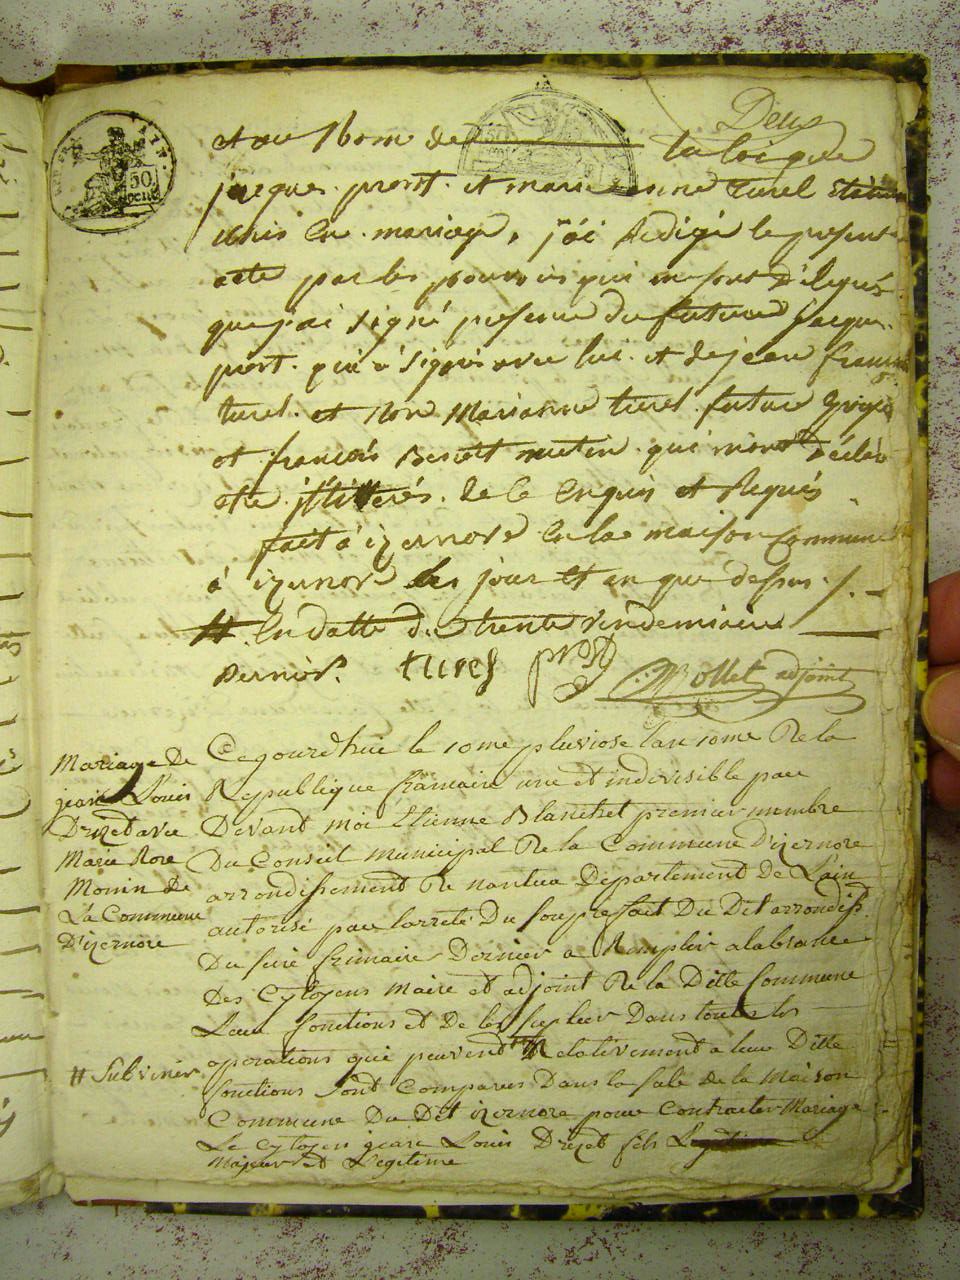 Deux
AIN.
50
et au Nom de la loi que
jacques prost. et marie anne turel étaient
unis en mariage, j'ai Redigé le present
acte par les pouvoirs qui me sont délégués
que j'ai signé presence du future jacque
prost. qui a signé avec lui. et de jean françois
turel. et non Marianne turel future
et françois Benoit metin qui m'ont déclaré
etre illiterés. de ce Enquis et Requis
fait à izernore en la maison Commune
à izernore les jour et an que dessus ./.
# En datte du trente vendemiaire
Dernier. turel prost Mollet adjoint
Mariage De
jean Louis
Druet avec
Marie Rose
Monin de
La Commune
D'izernore
Cejourd'hui le 10me pluviose l'an 10me De la
Republique francaise une et indivisible par
Devant moi Etienne Blanchet premier membre
Du Conseil municipal De la Commune D'izernore
arrondissement De nantua Departement de L'ain
autorisé par l'arreté Du souprefait Du Dit arrondiss.
Du seize frimaire Dernier a Remplir alabsance
Des Cytoyens Maire et adjoint De la Ditte Commune
Leur fonctions et De les suplier Dans toutes les
operations qui peuvent # Relativement a leur Ditte
# Subvenir
fonctions sont Comparus Dans la sale de la Maison
Commune Du Dit izernore pour Contracter Mariage
Le Cytoyen jean Louis Druet fils
Majeur et Legitime